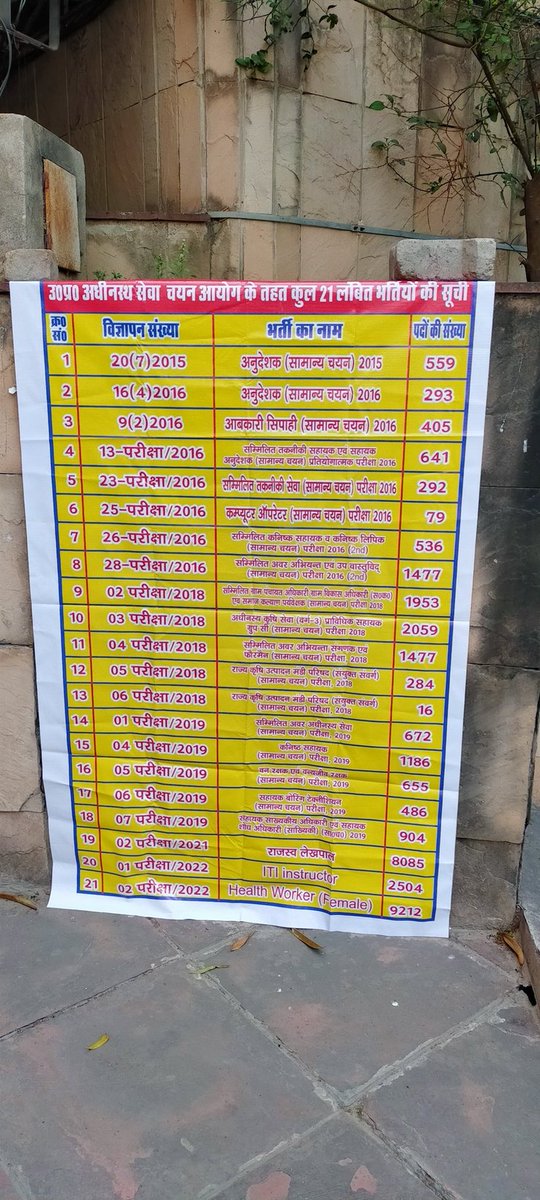 उ०प्र० अधीनस्थ सेवा चयन आयोग के तहत कुल 21 लंबित भर्तियों की सूची
क्र० सं० विज्ञापन संख्या भर्ती का नाम पदों की संख्या
1 20(7)2015 अनुदेशक (सामान्य चयन) 2015 559
2 16(4)2016 अनुदेशक (सामान्य चयन) 2016 293
3 9(2)2016 आबकारी सिपाही (सामान्य चयन) 2016 405
4 13-परीक्षा/2016 सम्मिलित तकनीकी सहायक एवं सहायक
अनुदेशक (सामान्य चयन) प्रतियोगात्मक परीक्षा 2016 641
5 23-परीक्षा/2016 सम्मिलित तकनीकी सेवा (सामान्य चयन) परीक्षा 2016 292
6 25-परीक्षा/2016 कम्प्यूटर ऑपरेटर (सामान्य चयन) परीक्षा 2016 79
7 26-परीक्षा/2016 सम्मिलित कनिष्ठ सहायक व कनिष्ठ लिपिक
(सामान्य चयन) परीक्षा 2016 (2nd) 536
8 28-परीक्षा/2016 सम्मिलित अवर अभियन्ता एवं उप वास्तुविद्
(सामान्य चयन) परीक्षा 2016 (2nd) 1477
9 02 परीक्षा/2018 सम्मिलित ग्राम पंचायत अधिकारी ग्राम विकास अधिकारी (स०क०)
एवं समाज कल्याण पर्यवेक्षक (सामान्य चयन) परीक्षा 2018 1953
10 03 परीक्षा/2018 अधीनस्थ कृषि सेवा (वर्ग-3) प्राविधिक सहायक
ग्रुप सी (सामान्य चयन) परीक्षा 2018 2059
11 04 परीक्षा/2018 सम्मिलित अवर अभियन्ता संगणक एवं
फोरमैन (सामान्य चयन) परीक्षा, 2018 1477
12 05 परीक्षा/2018 राज्य कृषि उत्पादन मंडी परिषद (संयुक्त संवर्ग)
(सामान्य चयन) परीक्षा, 2018 284
13 06 परीक्षा/2018 राज्य कृषि उत्पादन मंडी परिषद (संयुक्त संवर्ग)
(सामान्य चयन) परीक्षा, 2018 16
14 01 परीक्षा/2019 सम्मिलित अवर अधीनस्थ सेवा
(सामान्य चयन) परीक्षा, 2019 672
15 04 परीक्षा/2019 कनिष्ठ सहायक
(सामान्य चयन) परीक्षा, 2019 1186
16 05 परीक्षा/2019 वन रक्षक एवं वन्यजीव रक्षक
(सामान्य चयन) परीक्षा, 2019 655
17 06 परीक्षा/2019 सहायक बोरिंग टेक्नीशियन
(सामान्य चयन) परीक्षा, 2019 486
18 07 परीक्षा/2019 सहायक सांख्यकीय अधिकारी एवं सहायक
शोध अधिकारी (सांख्यिकी) (सा०च०) 2019 904
19 02 परीक्षा/2021 राजस्व लेखपाल 8085
20 01 परीक्षा/2022 ITI instructor 2504
21 02 परीक्षा/2022 Health Worker (Female) 9212